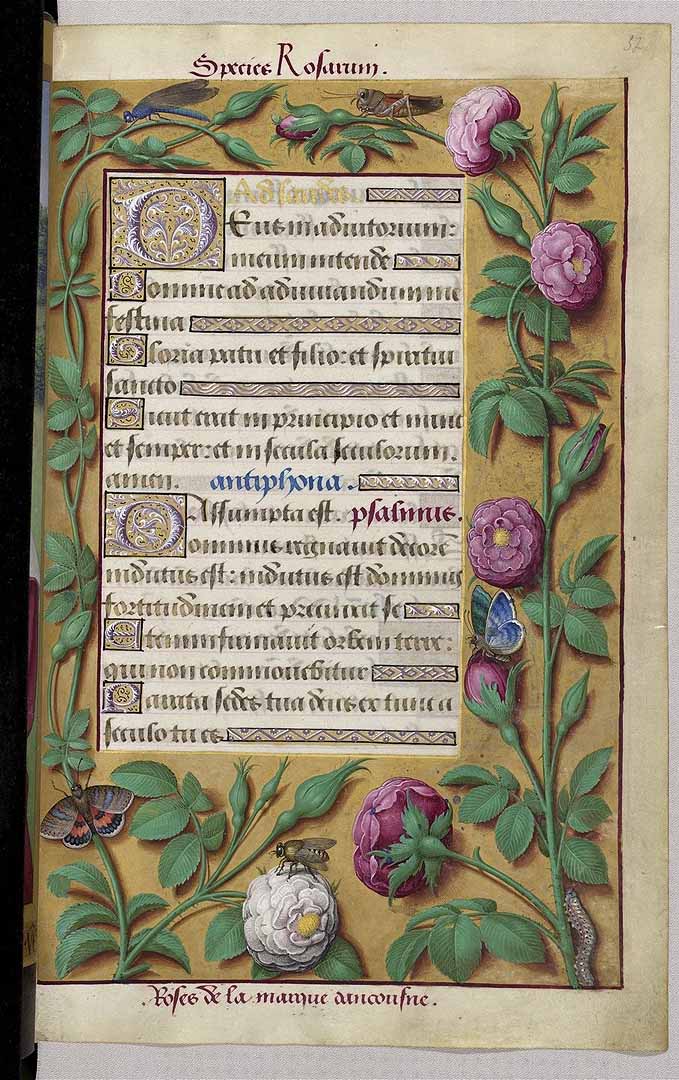 Species Rosarum.
Ad laudes
Deus in adiutorium:
meum intende
Domine ad adiuuandum me
festina
Gloria patri et filio: et spiritui
sancto
Sicut erat in principio et nunc
et semper: et in secula seculorum.
amen. antiphona.
Assumpta est. psalmus.
Dominus regnauit decorē
indutus est: indutus est dominus
fortitudinem et precinxit se
Etenim firmauit orbem terre:
qui non commouebitur
Parata sedes tua deus ex tunc a
seculo tu es
Roses de la marque dancousne.